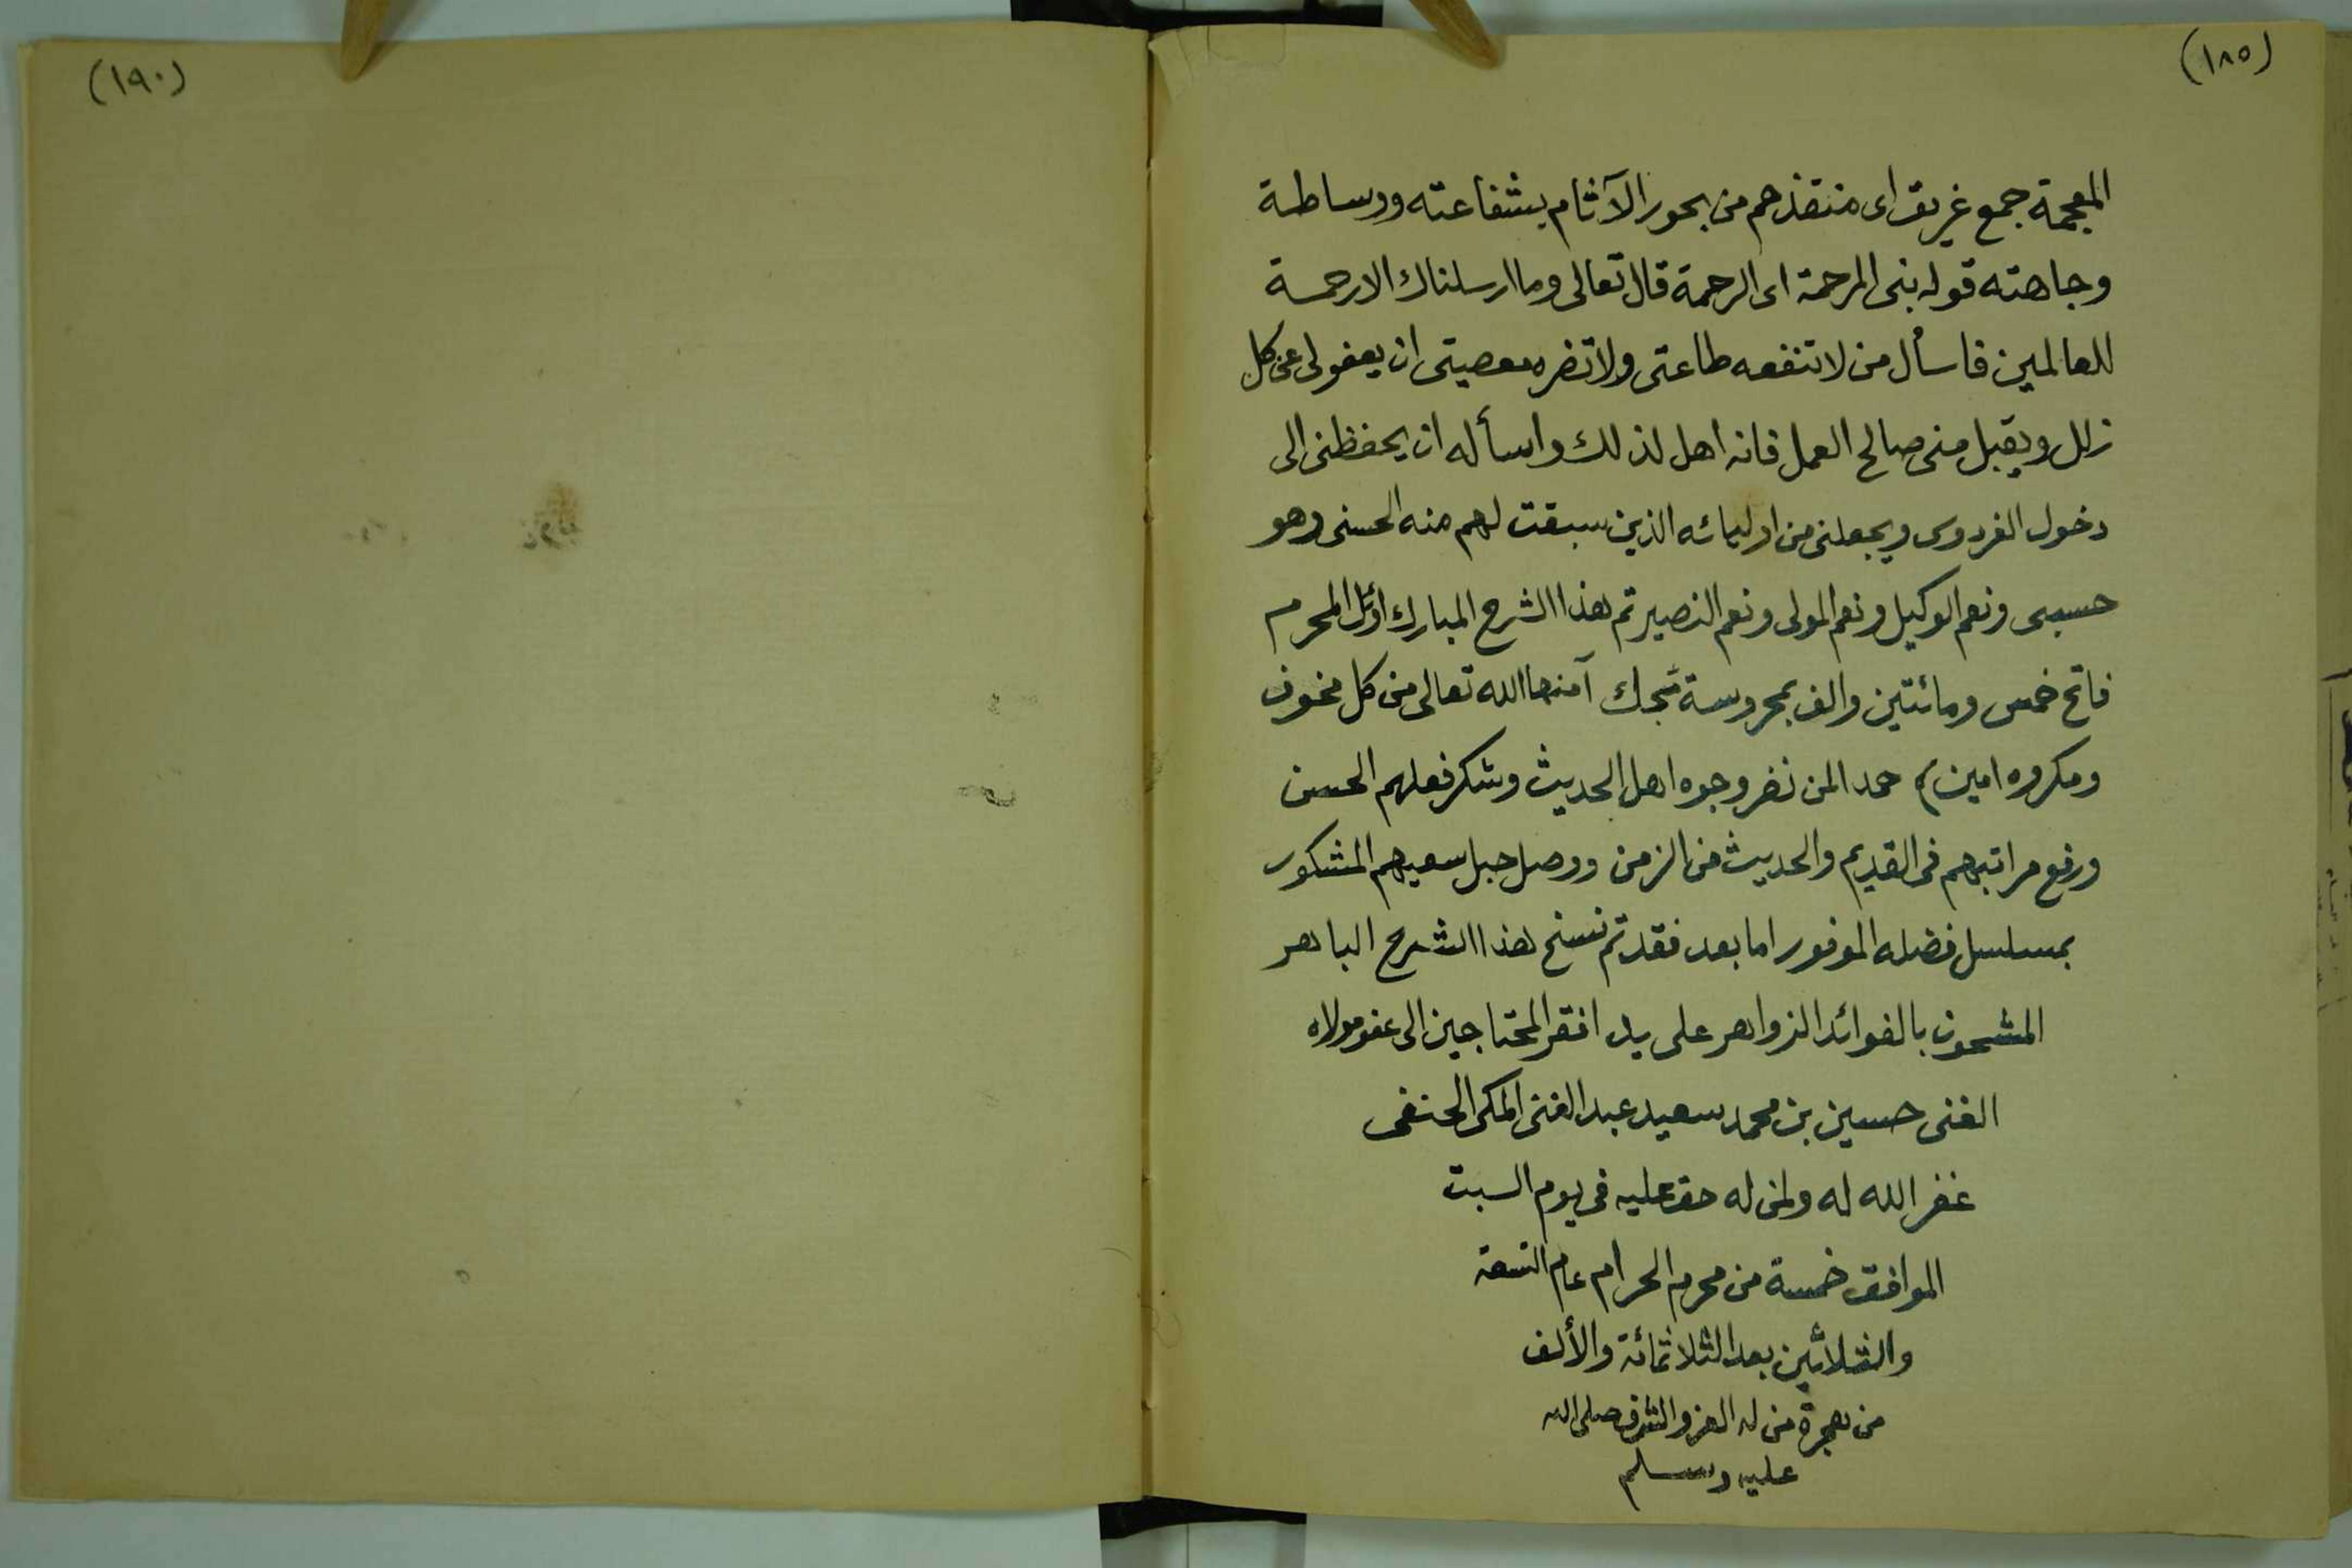 (١٨٥)
المعجمة جمع غريق اى منقذهم من بحور الآثام بشفاعته ووساطة
وجاهته قوله بنى المرحمة اى الرحمة قال تعالى وما ارسلناك الا رحمة
للعالمين فاسأل من لا تنفعه طاعتى ولا تضره معصيتى ان يعفو لى عن كل
زلل ويقبل منى صالح العمل فانه اهل لذلك واسأله ان يحفظنى الى
دخول الفردوس ويجعلنى من اوليائه الذين سبقت لهم منه الحسنى وهو
حسبى ونعم الوكيل ونعم المولى ونعم النصير تم هذا الشرح المبارك اوئل المحرم
فاتح خمس ومائتين والف بمحروسة آمنها الله تعالى من كل مخوف
ومكروه امين م حمدا لمن نضر وجوه اهل الحديث وشكر فعلهم الحسن
ورفع مراتبهم فى القديم والحديث من الزمن ووصل حبل سعيهم المشكور
بمسلسل فضله الموفور اما بعد فقد تم نسخ هذا الشرح الباهر
المشحون بالفوائد الزواهر على يد افقر المحتاجين الى عفو مولاه
الغنى حسين بن محمد سعيد عبد الغنى المكى الحنفى
غفر الله له ولمن له حق عليه فى يوم السبت
الموافق خمسة من محرم الحرام عام التسعة
والثلاثين بعد الثلاثمائة والألف
من هجرة من له العز والشرف صلى الله
عليه وسلم
(١٩٠)